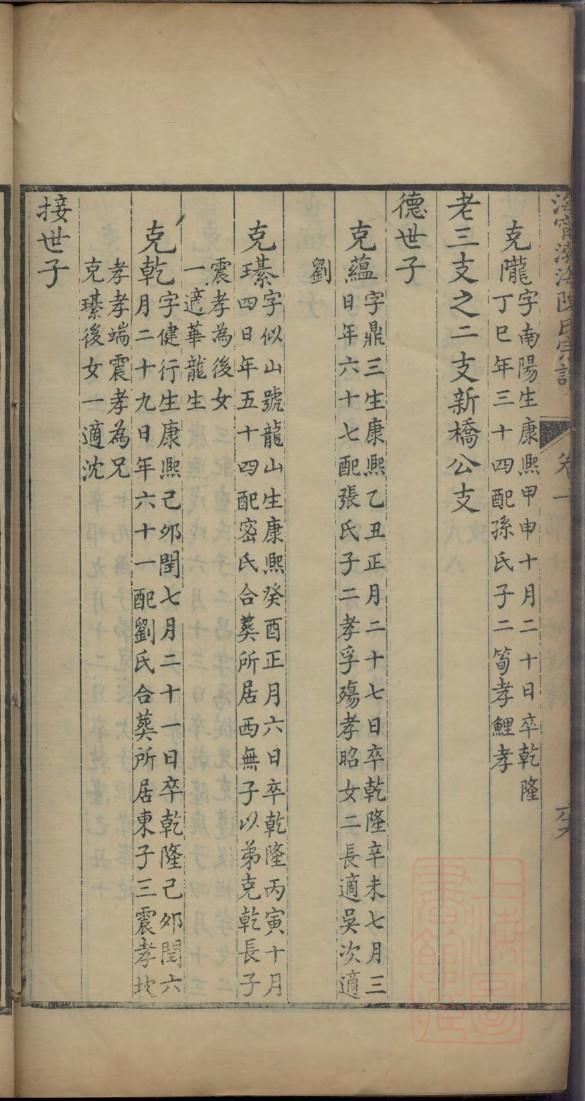 海寧渤海陳氏宗譜 卷
克隴字南陽生康熙甲申十月二十日卒乾隆
丁巳年三十四配孫氏子二筍孝鯉孝
老三支之二支新橋公支
德世子
克蘊字鼎三生康熙乙丑正月二十七日卒乾隆辛未七月三
日年六十七配張氏子二孝孚殤孝昭女二長適吳次適
劉
克璂字似山號龍山生康熙癸酉正月六日卒乾隆丙寅十月
四日年五十四配密氏合葬所居西無子以弟克乾長子
震孝為後女
一適華龍生
克乾字健行生康熙己夘閏七月二十一日卒乾隆己夘閏六
月二十九日年六十一配劉氏合葬所居東子三震孝坎
孝孝端震孝為兄
克璂後女一適沈
接世子